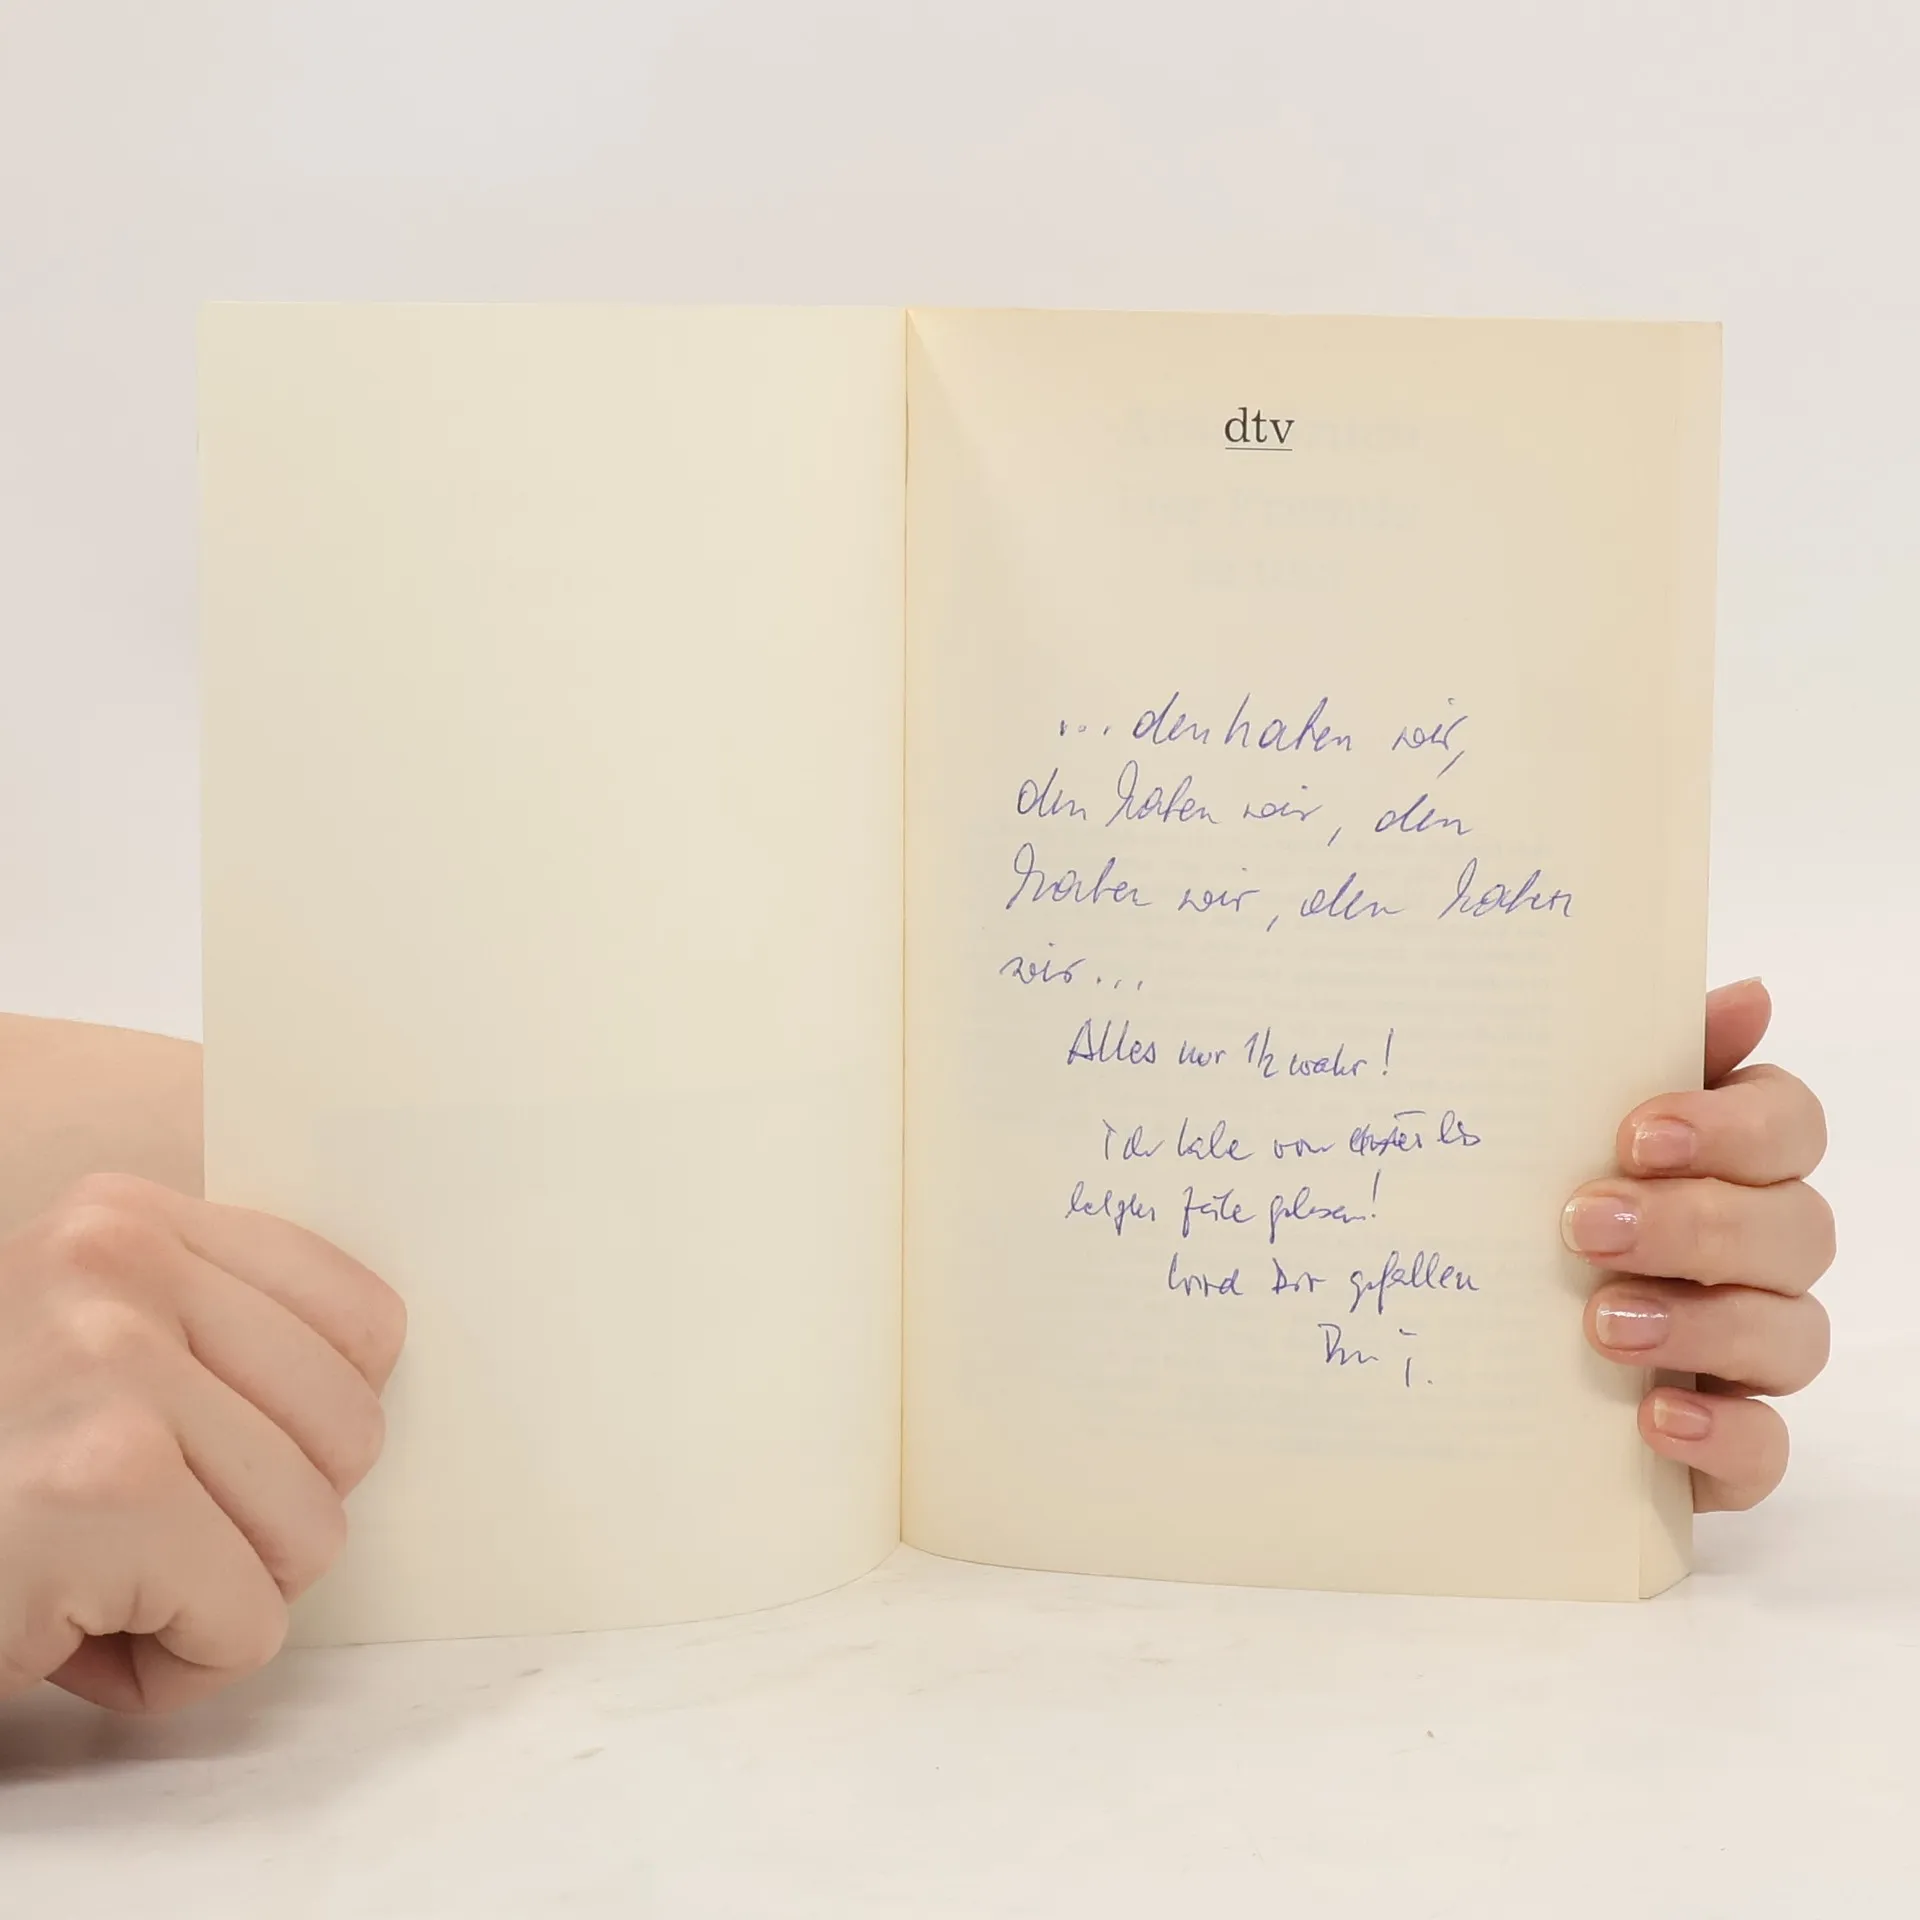 dtv
... den haben wir,
den haben wir, den
haben wir, den haben
wir...
Alles nur 1/2 wahr!
Ich habe von erster bis
letzter Zeile gelesen!
Wird Dir gefallen